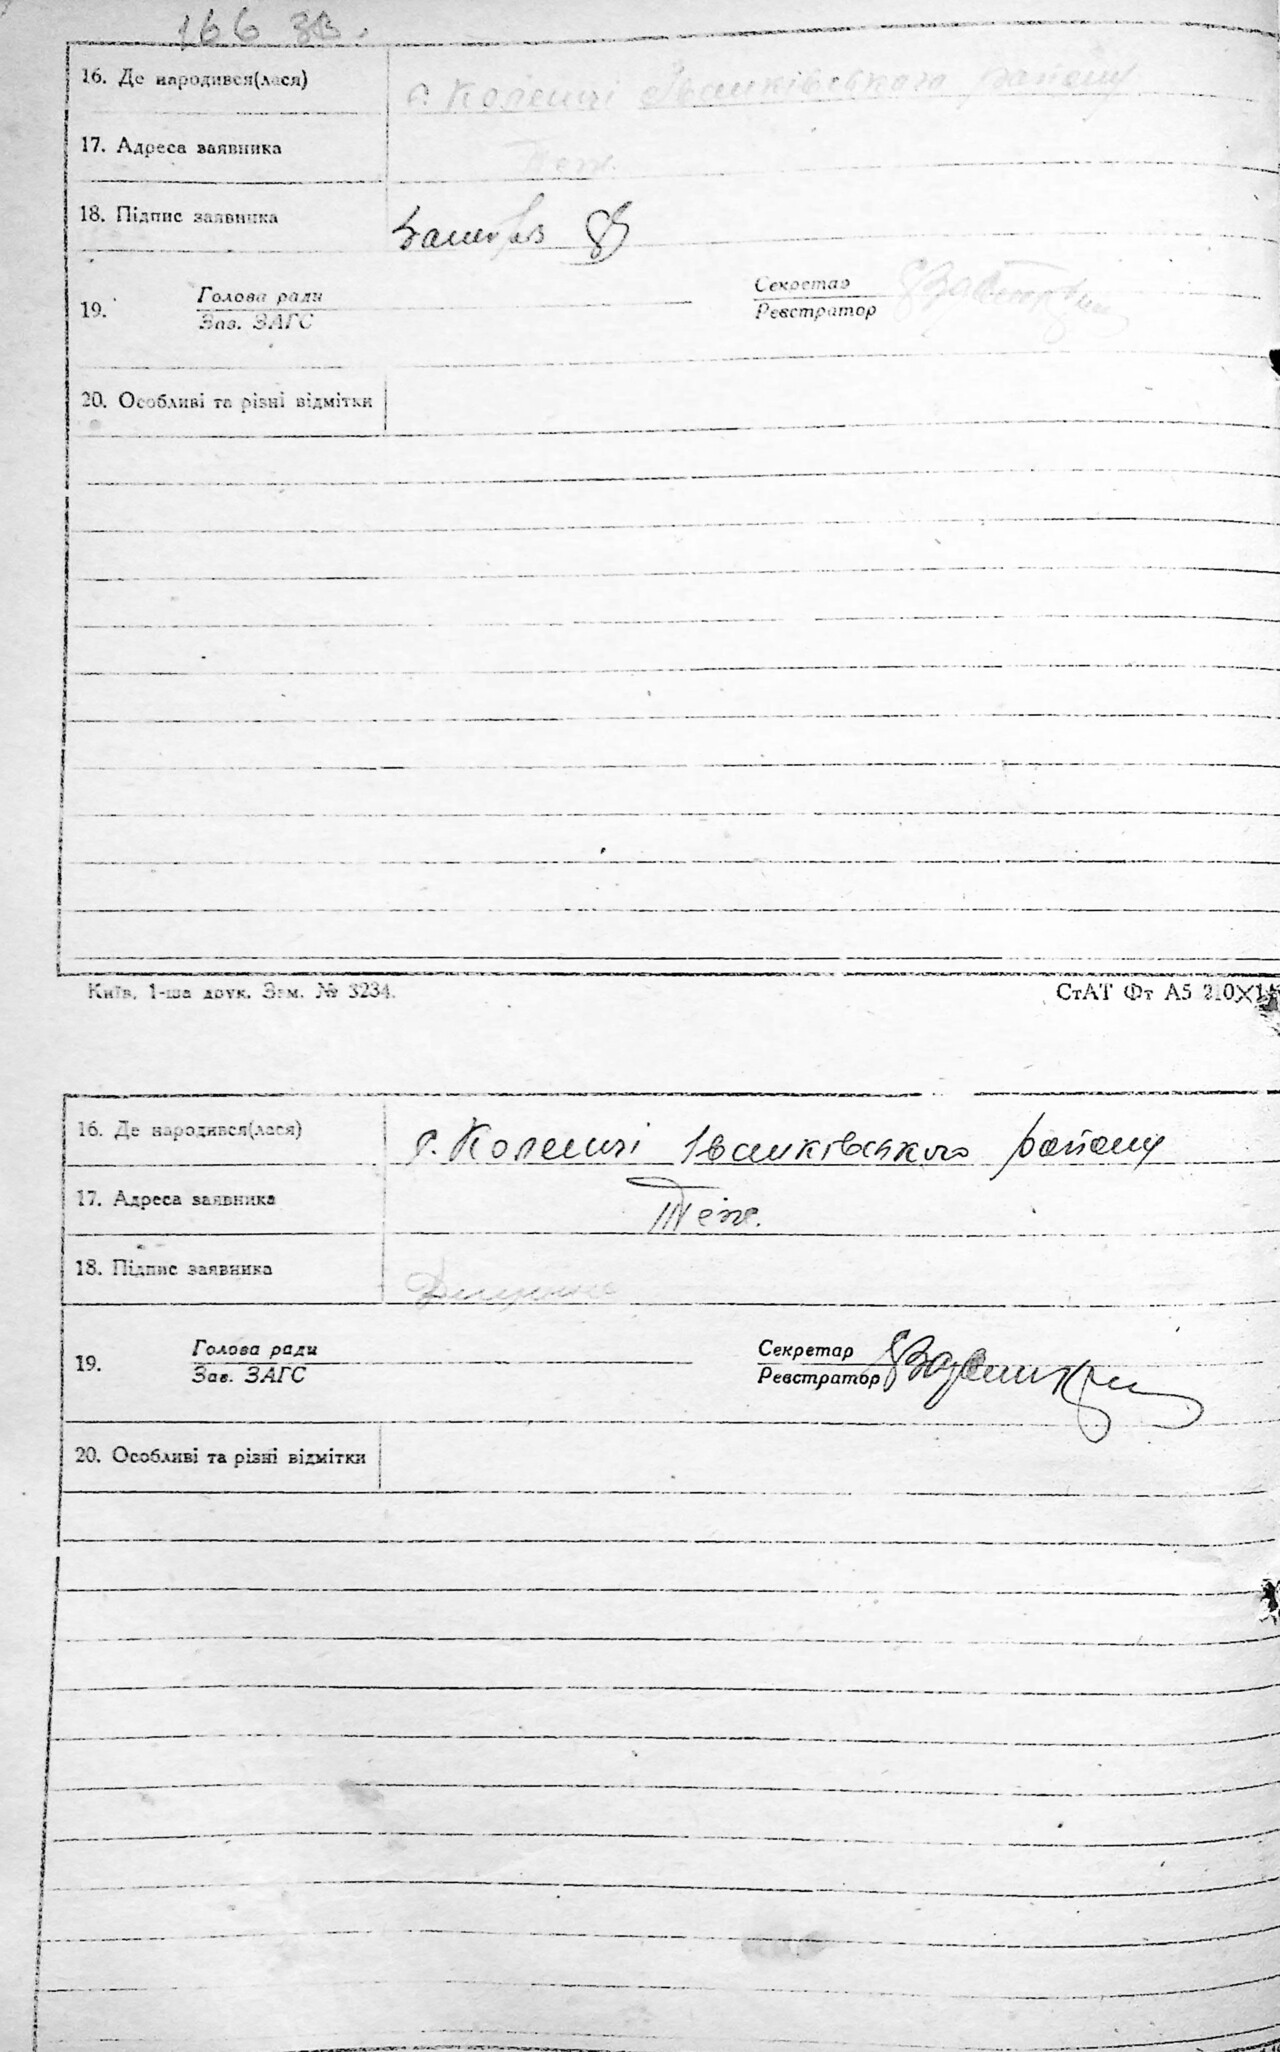 166 зв.
16. Де народився(лася) с. Коленці Іванківського району
17. Адреса заявника Теж.
18. Підпис заявника
19. Голова ради Секретар
Зав. ЗАГС Реєстратор
20. Особливі та різні відмітки
Київ. 1-ша друк. Зам. № 3234. СтАТ Фт А5 210×14
16. Де народився(лася) с. Коленці Іванківського району
17. Адреса заявника Теж.
18. Підпис заявника
19. Голова ради Секретар
Зав. ЗАГС Реєстратор
20. Особливі та різні відмітки